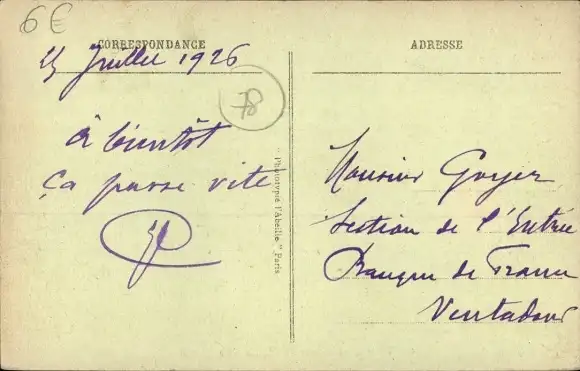 6€
CORRESPONDANCE
ADRESSE
25 Juillet 1926
78
à bientôt
ça passe vite
" Phototypie l'Abeille " Paris
Monsieur Goyer
Section de l'Entrée
Banque de France
Ventadour